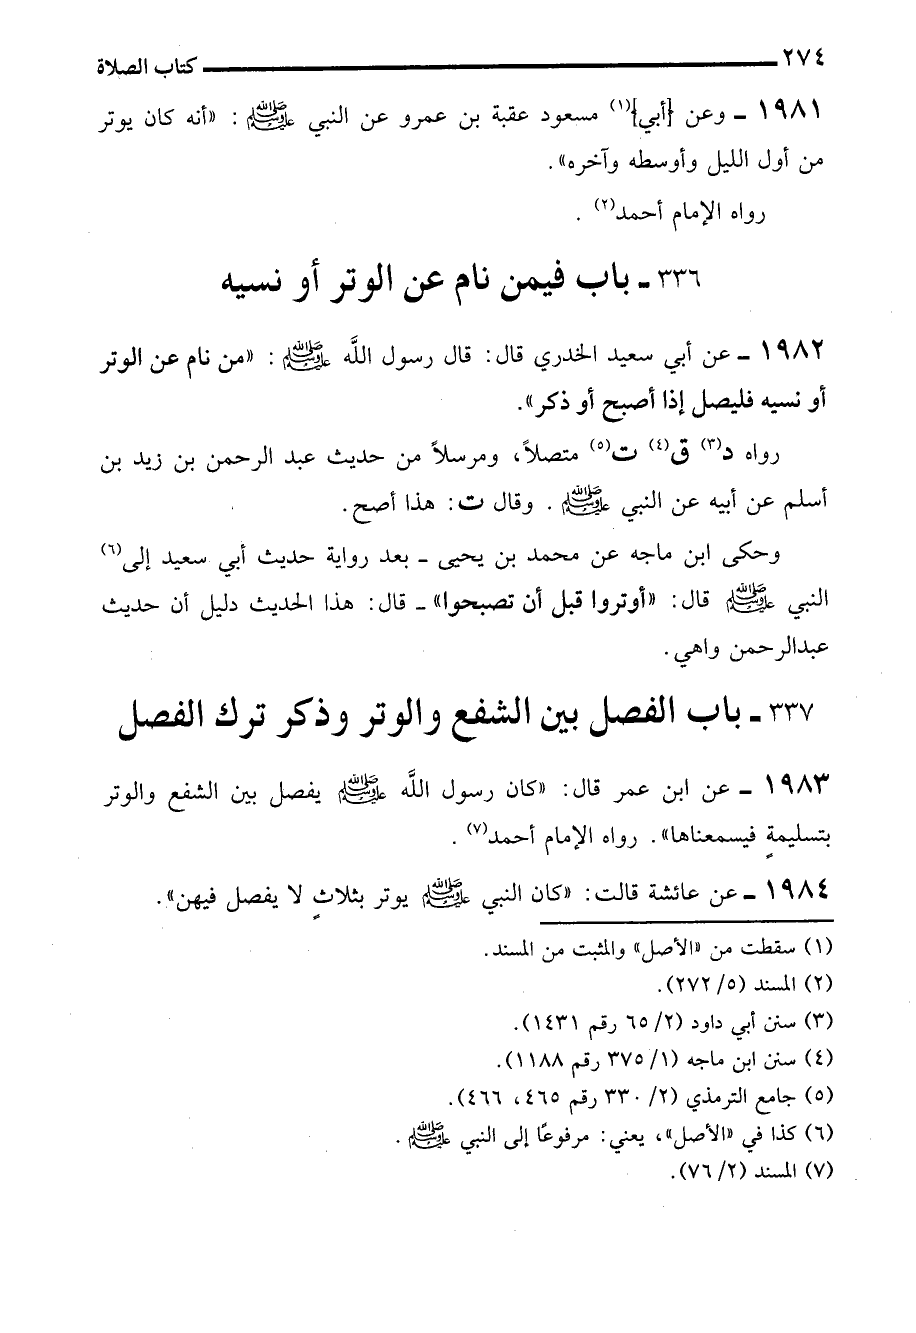 ٢٧٤ كتاب الصلاة
١٩٨١ ـ وعن {أبي}(١) مسعود عقبة بن عمرو عن النبي ﷺ : «أنه كان يوتر
من أول الليل وأوسطه وآخره».
رواه الإمام أحمد(٢) .
٣٣٦ ـ باب فيمن نام عن الوتر أو نسيه
١٩٨٢ ـ عن أبي سعيد الخدري قال: قال رسول اللَّه ﷺ : «من نام عن الوتر
أو نسيه فليصل إذا أصبح أو ذكر».
رواه د(٣) ق(٤) ت(٥) متصلاً، ومرسلاً من حديث عبد الرحمن بن زيد بن
أسلم عن أبيه عن النبي ﷺ . وقال ت: هذا أصح.
وحكى ابن ماجه عن محمد بن يحيى ـ بعد رواية حديث أبي سعيد إلى(٦)
النبي ﷺ قال: «أوتروا قبل أن تصبحوا» ـ قال: هذا الحديث دليل أن حديث
عبدالرحمن واهي.
٣٣٧ ـ باب الفصل بين الشفع والوتر وذكر ترك الفصل
١٩٨٣ ـ عن ابن عمر قال: «كان رسول اللَّه ﷺ يفصل بين الشفع والوتر
بتسليمةٍ فيسمعناها». رواه الإمام أحمد(٧) .
١٩٨٤ ـ عن عائشة قالت: «كان النبي ﷺ يوتر بثلاثٍ لا يفصل فيهن».
(١) سقطت من «الأصل» والمثبت من المسند.
(٢) المسند (٥/ ٢٧٢).
(٣) سنن أبي داود (٢/ ٦٥ رقم ١٤٣١).
(٤) سنن ابن ماجه (١/ ٣٧٥ رقم ١١٨٨).
(٥) جامع الترمذي (٢/ ٣٣٠ رقم ٤٦٥، ٤٦٦).
(٦) كذا في «الأصل»، يعني: مرفوعًا إلى النبي ﷺ .
(٧) المسند (٢/ ٧٦).